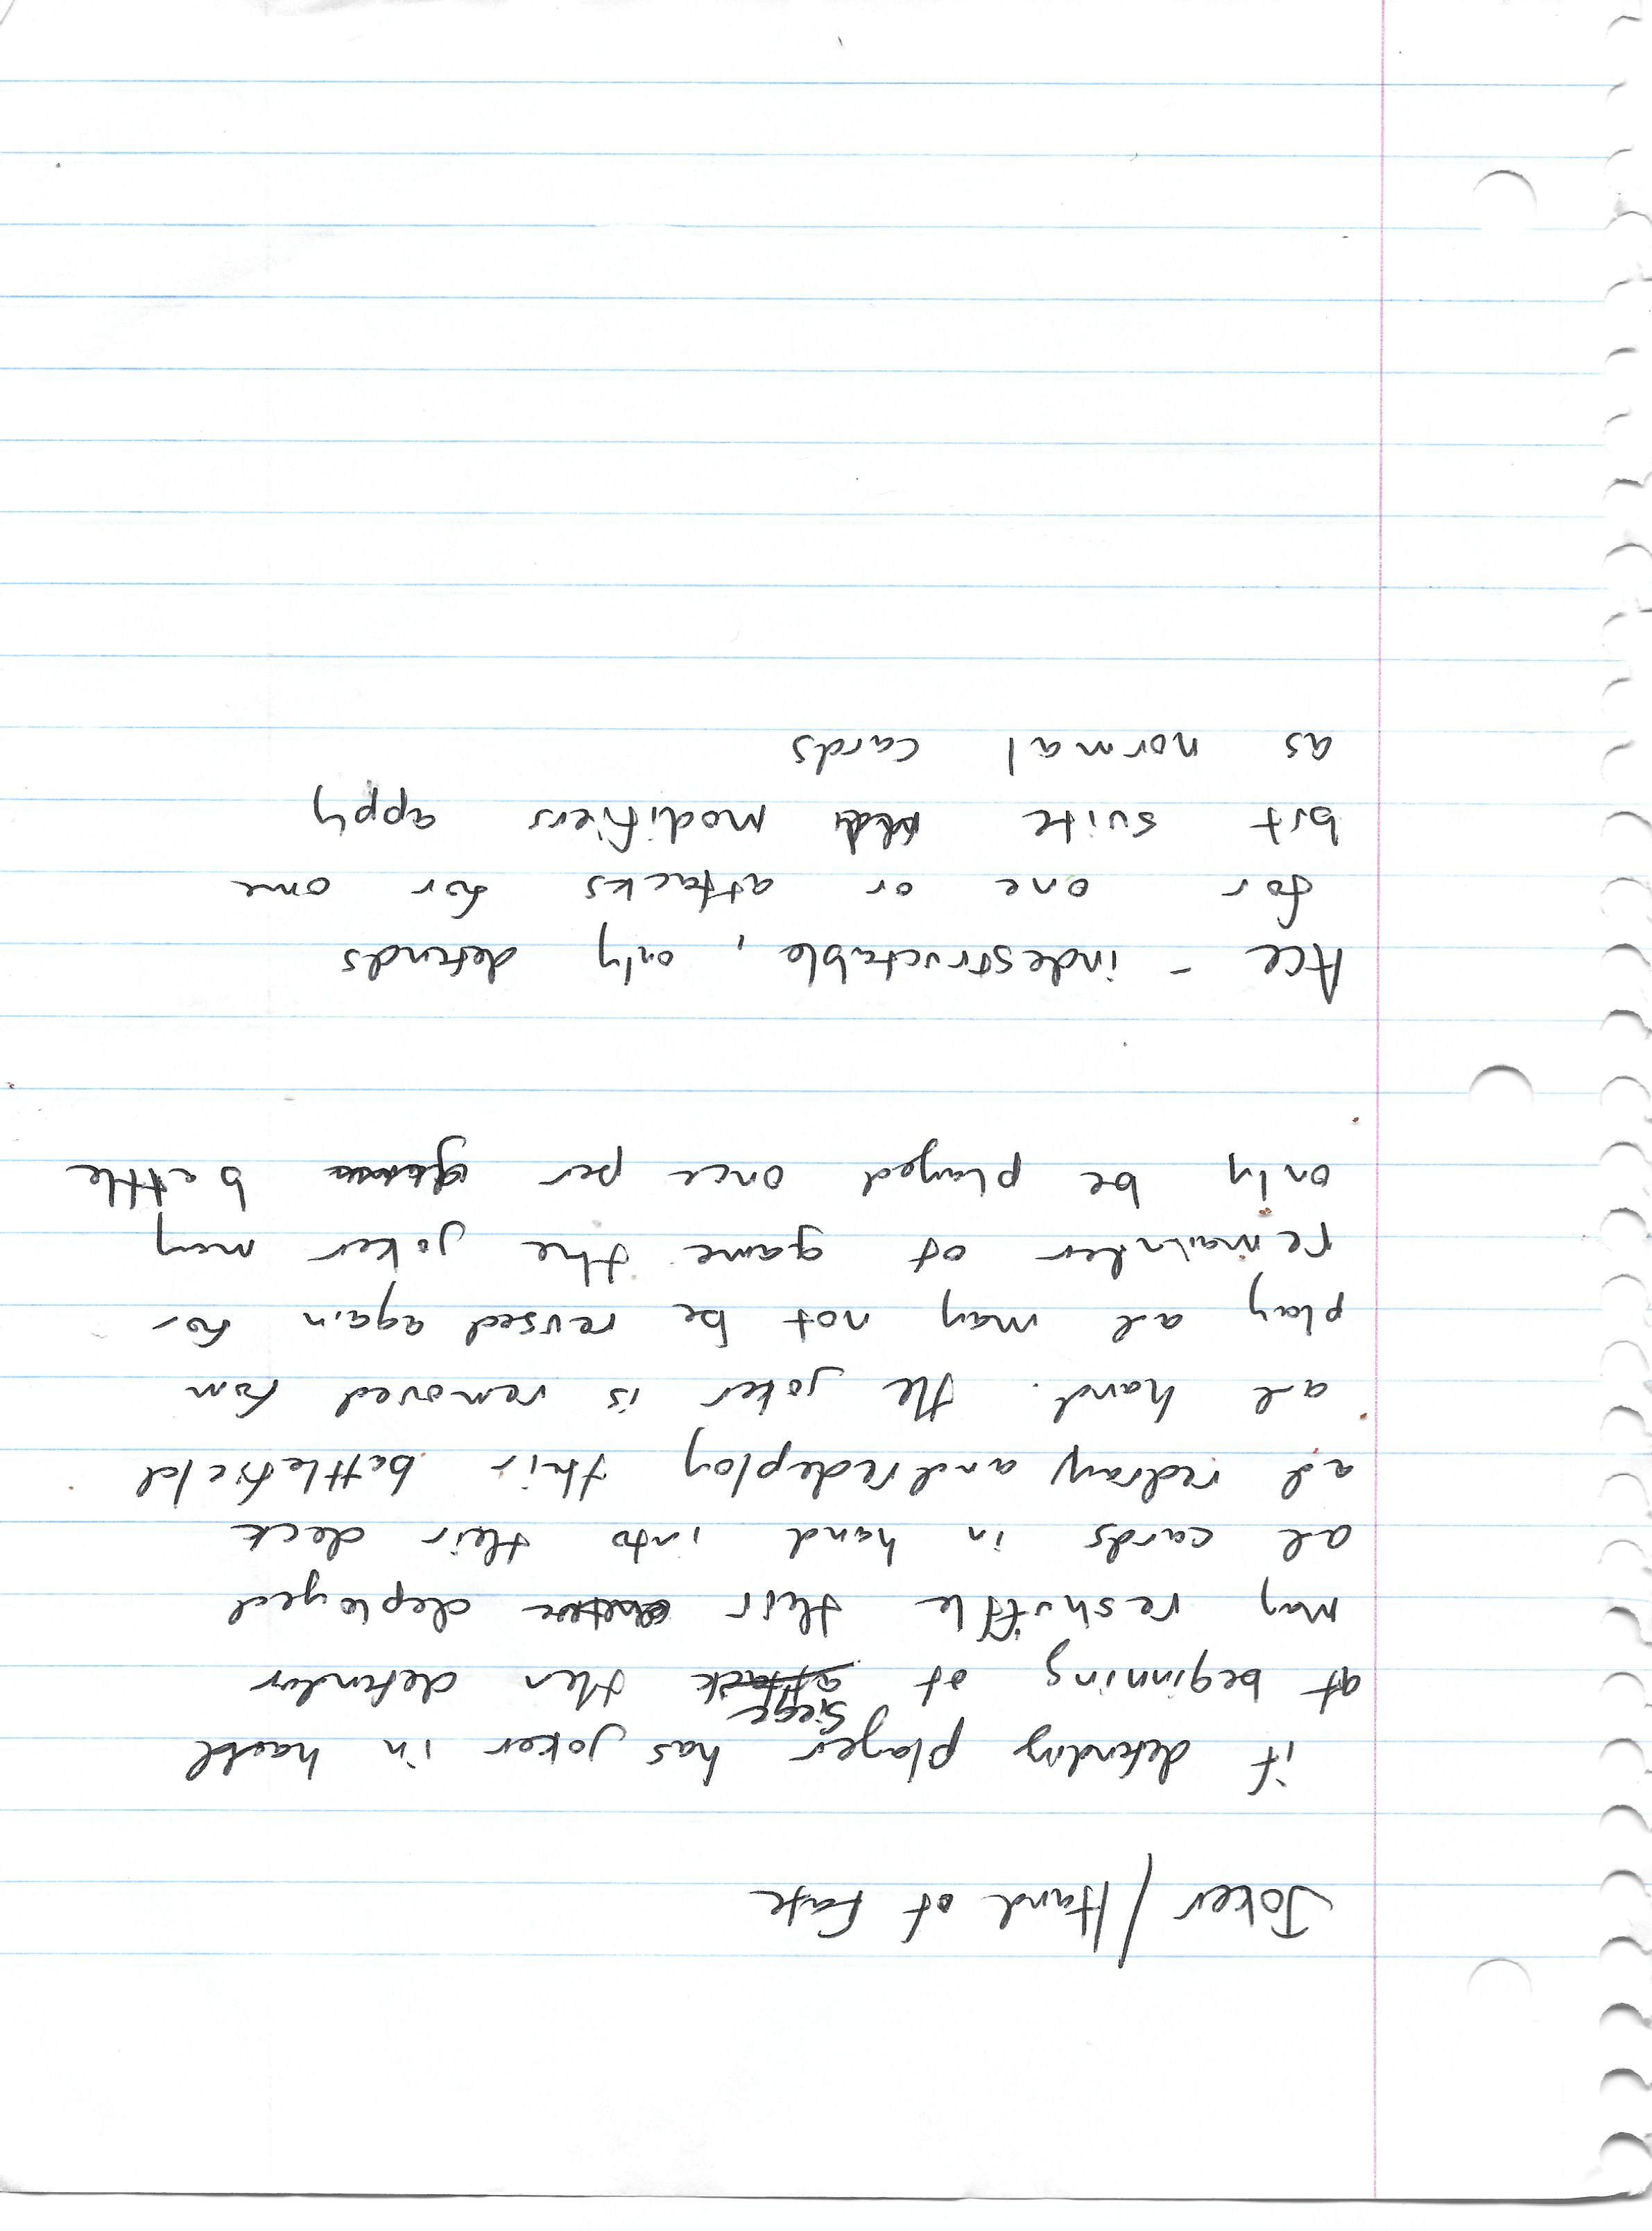 Joker / Hand of Fate
if defending player has joker in hand
Siege
at beginning of attack then defender
may reshuffle their deployed
and cards in hand into their deck
and redraw and redeploy their battlefield
and hand. The joker is removed from
play and may not be reused again for
remainder of game. the joker may
only be played once per game battle
Ace - indestructable, only defends
for one or attacks for one
but suite modifiers apply
as normal cards